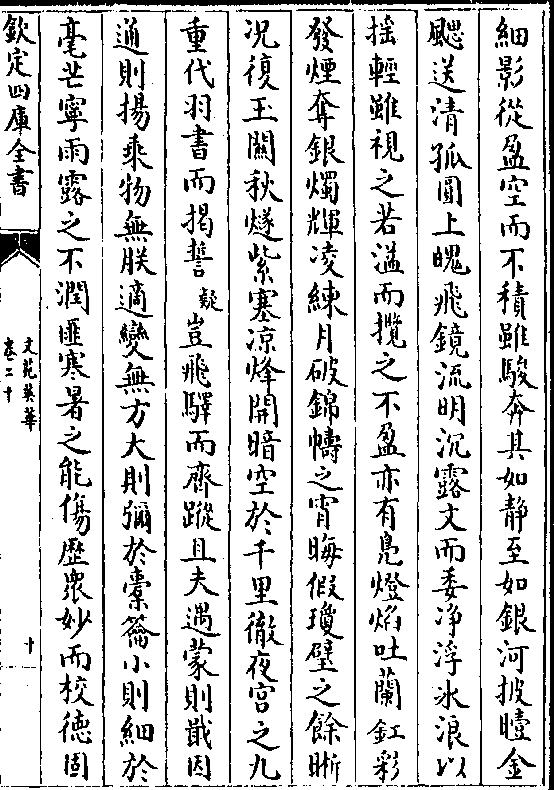 細影從盈空而不積雖駿奔其如静至如銀河披曀金
颸送清孤圓上魄飛鏡流明沉露文而委净浮氷浪以
揺輕雖視之若溢而攬之不盈亦有鳬燈焰吐蘭釭彩
發煙奪銀燭輝凌練月破錦幬之宵晦假瓊璧之餘晣
况復玉關秋燧紫塞凉烽開暗空於千里徹夜宫之九
重代羽書而掲誓疑豈飛驛而齊蹤且夫遇蒙則戢因
通則揚乗物無朕適變無方大則彌於槖籥小則細於
毫芒寧雨露之不潤匪寒暑之能傷歴衆妙而校徳固
欽定四庫全書
文苑英華
卷二十
十